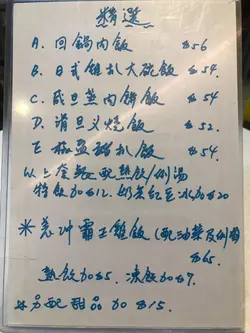 精選
A. 回鍋肉飯 $56
B. 日式雞扒大碗飯 $54.
C. 咸旦蒸肉餅飯 $54
D. 滑旦叉燒飯 $52.
E. 椒盐豬扒飯 $54.
以上套配熱飲/例湯
特飲加$12. 奶茶紅豆冰加$20
※羌沖霸王雞飯(配油菜及例湯
$65.
熱飲加$5. 凍飲加$7.
另配甜品加$15.